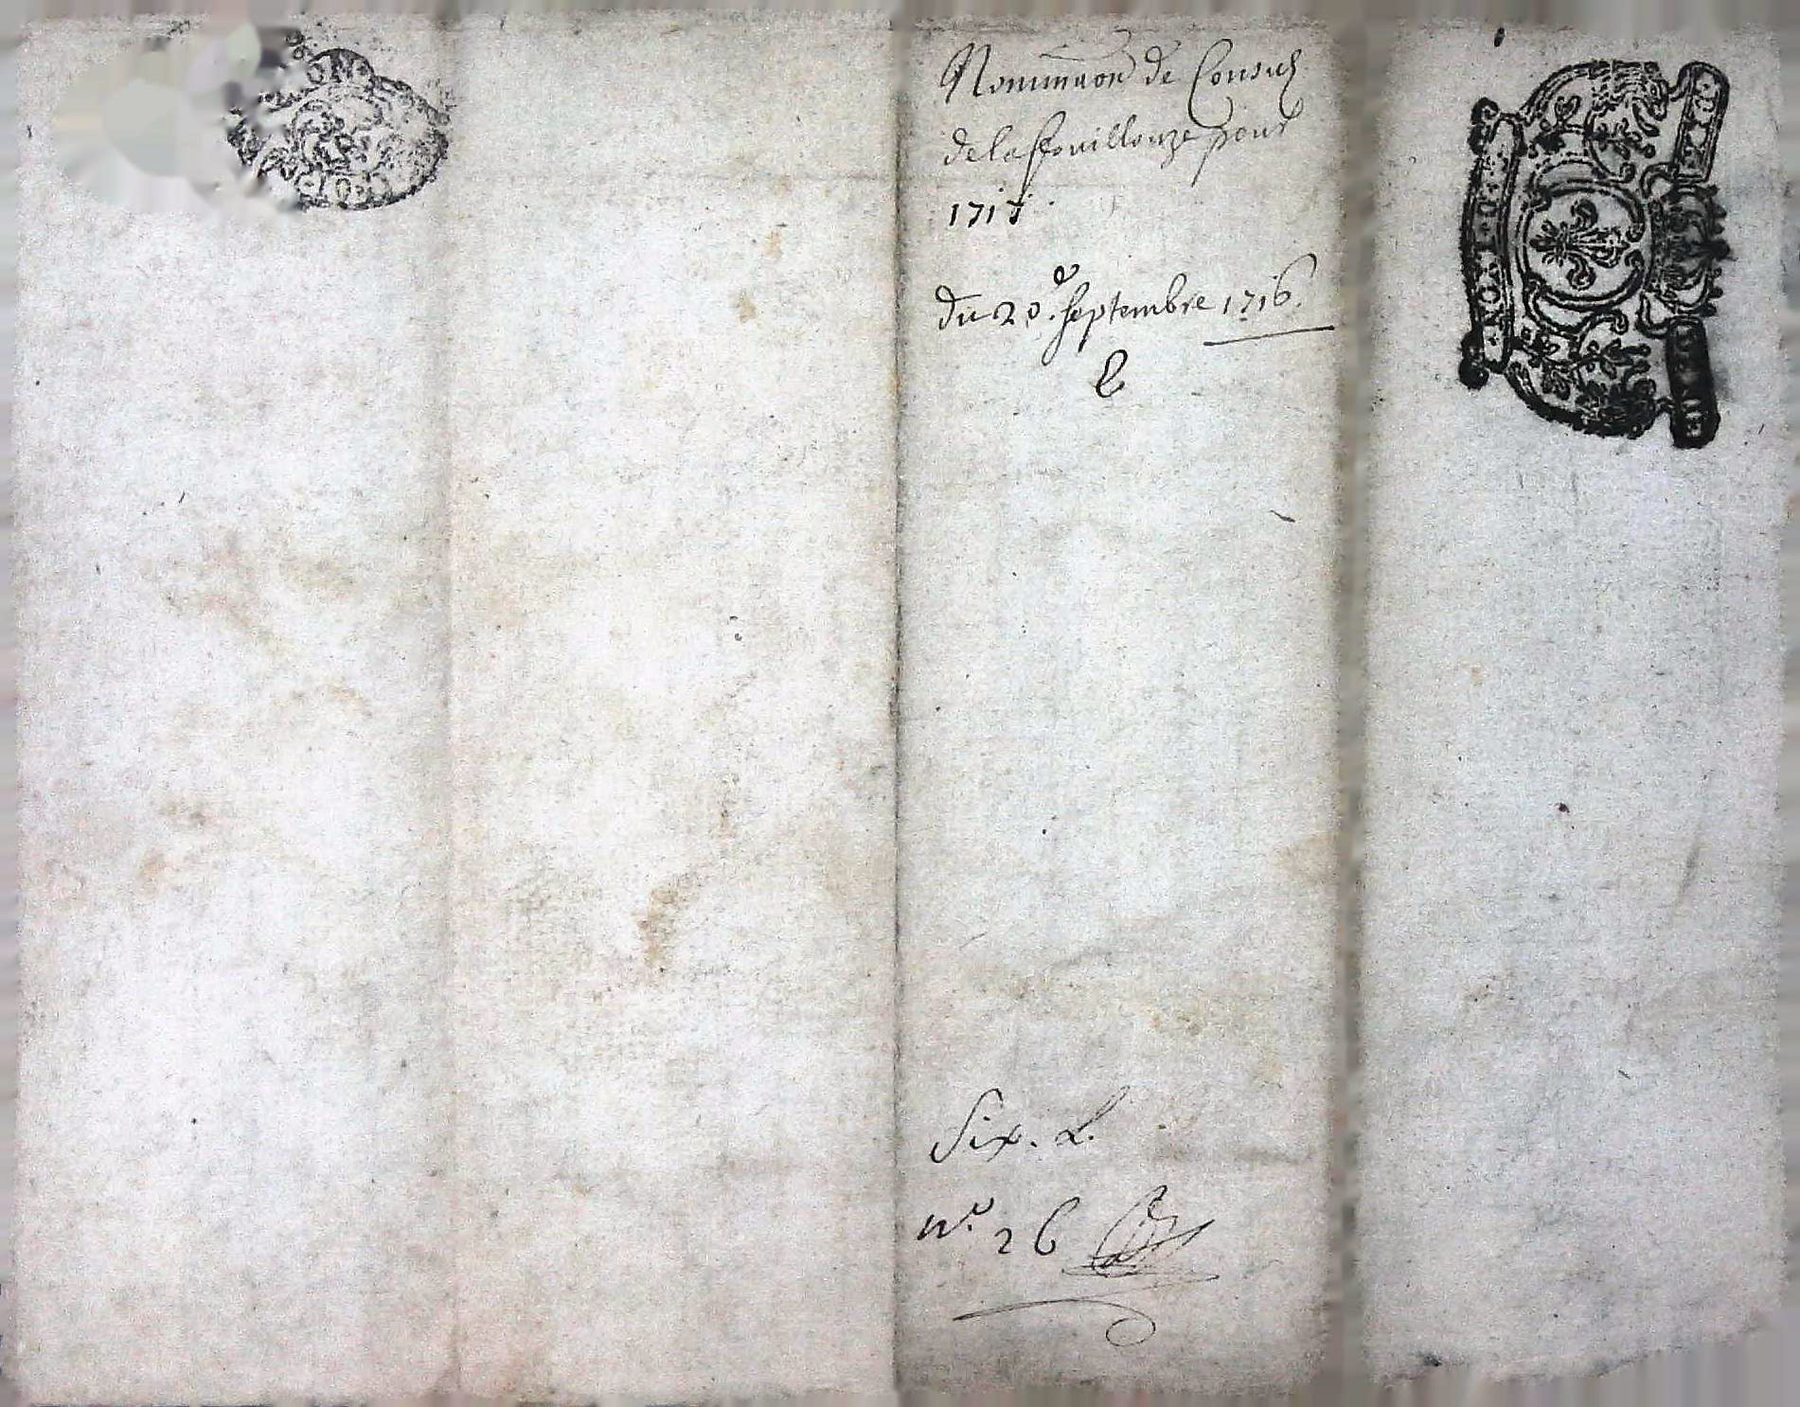 Nominaon de Consul
de la ffouillouze pour
1717.
du 20e. septembre 1716.
Six. L.
no. 26